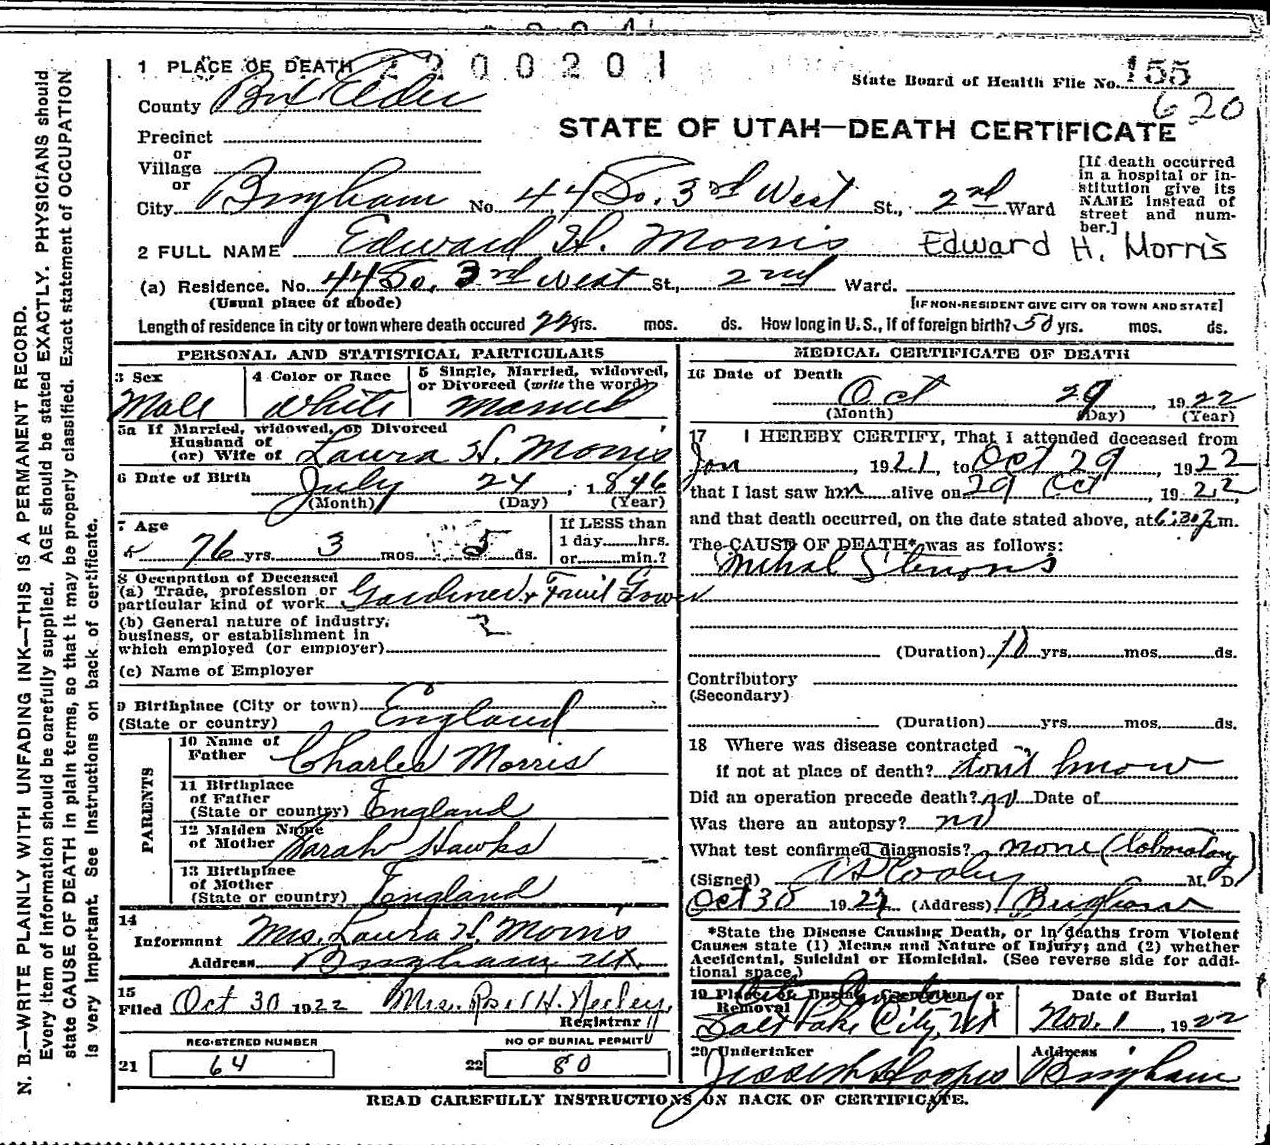 1 PLACE OF DEATH 2200201
State Board of Health File No. 155
620
County Box Elder
STATE OF UTAH—DEATH CERTIFICATE
Precinct
or
Village
or
City Bingham No. 44 So. 3rd West St., 2nd Ward
[If death occurred in a hospital or institution give its NAME instead of street and number.]
2 FULL NAME Edward H. Morris Edward H. Morris
(a) Residence. No. 44 So. 3rd West St., 2nd Ward.
(Usual place of abode) [IF NON-RESIDENT GIVE CITY OR TOWN AND STATE]
Length of residence in city or town where death occured 22 yrs. mos. ds. How long in U. S., if of foreign birth? 50 yrs. mos. ds.
PERSONAL AND STATISTICAL PARTICULARS
3 Sex Male
4 Color or Race White
5 Single, Married, widowed, or Divorced (write the word) Married
5a If Married, widowed, or Divorced
Husband of
(or) Wife of Laura H. Morris
6 Date of Birth July 24, 1846
(Month) (Day) (Year)
7 Age 76 yrs 3 mos. 5 ds.
If LESS than
1 day......hrs.
or......min.?
8 Occupation of Deceased
(a) Trade, profession or
particular kind of work Gardiner & Fruit Grower
(b) General nature of industry,
business, or establishment in
which employed (or employer)
(c) Name of Employer
9 Birthplace (City or town)
(State or country) England
PARENTS
10 Name of
Father Charles Morris
11 Birthplace
of Father
(State or country) England
12 Maiden Name
of Mother Sarah Hawks
13 Birthplace
of Mother
(State or country) England
14
Informant Mrs. Laura H. Morris
Address Bingham Ut.
15
Filed Oct 30 1922
Registrar
REGISTERED NUMBER
21 64
NO OF BURIAL PERMIT
22 80
MEDICAL CERTIFICATE OF DEATH
16 Date of Death
Oct 29, 1922
(Month) (Day) (Year)
17 I HEREBY CERTIFY, That I attended deceased from
Jan, 1921, to Oct 29, 1922
that I last saw him alive on 29 Oct, 1922,
and that death occurred, on the date stated above, at 6:30 p.m.
The CAUSE OF DEATH* was as follows:
Mitral Stenosis
(Duration) 10 yrs. mos. ds.
Contributory
(Secondary)
(Duration) yrs. mos. ds.
18 Where was disease contracted
if not at place of death? don't know
Did an operation precede death? no Date of
Was there an autopsy? no
What test confirmed diagnosis? none (laboratory)
(Signed) M. D.
Oct 30 1922 (Address) Brigham
*State the Disease Causing Death, or in deaths from Violent
Causes state (1) Means and Nature of Injury; and (2) whether
Accidental, Suicidal or Homicidal. (See reverse side for additional space.)
19 Place of Burial, Cremation, or
Removal
Salt Lake City, Ut
Date of Burial
Nov. 1, 1922
20 Undertaker
Address
Bingham
READ CAREFULLY INSTRUCTIONS ON BACK OF CERTIFICATE.
N. B.—WRITE PLAINLY WITH UNFADING INK—THIS IS A PERMANENT RECORD.
Every item of information should be carefully supplied. AGE should be stated EXACTLY. PHYSICIANS should
state CAUSE OF DEATH in plain terms, so that it may be properly classified. Exact statement of OCCUPATION
is very important. See instructions on back of certificate.